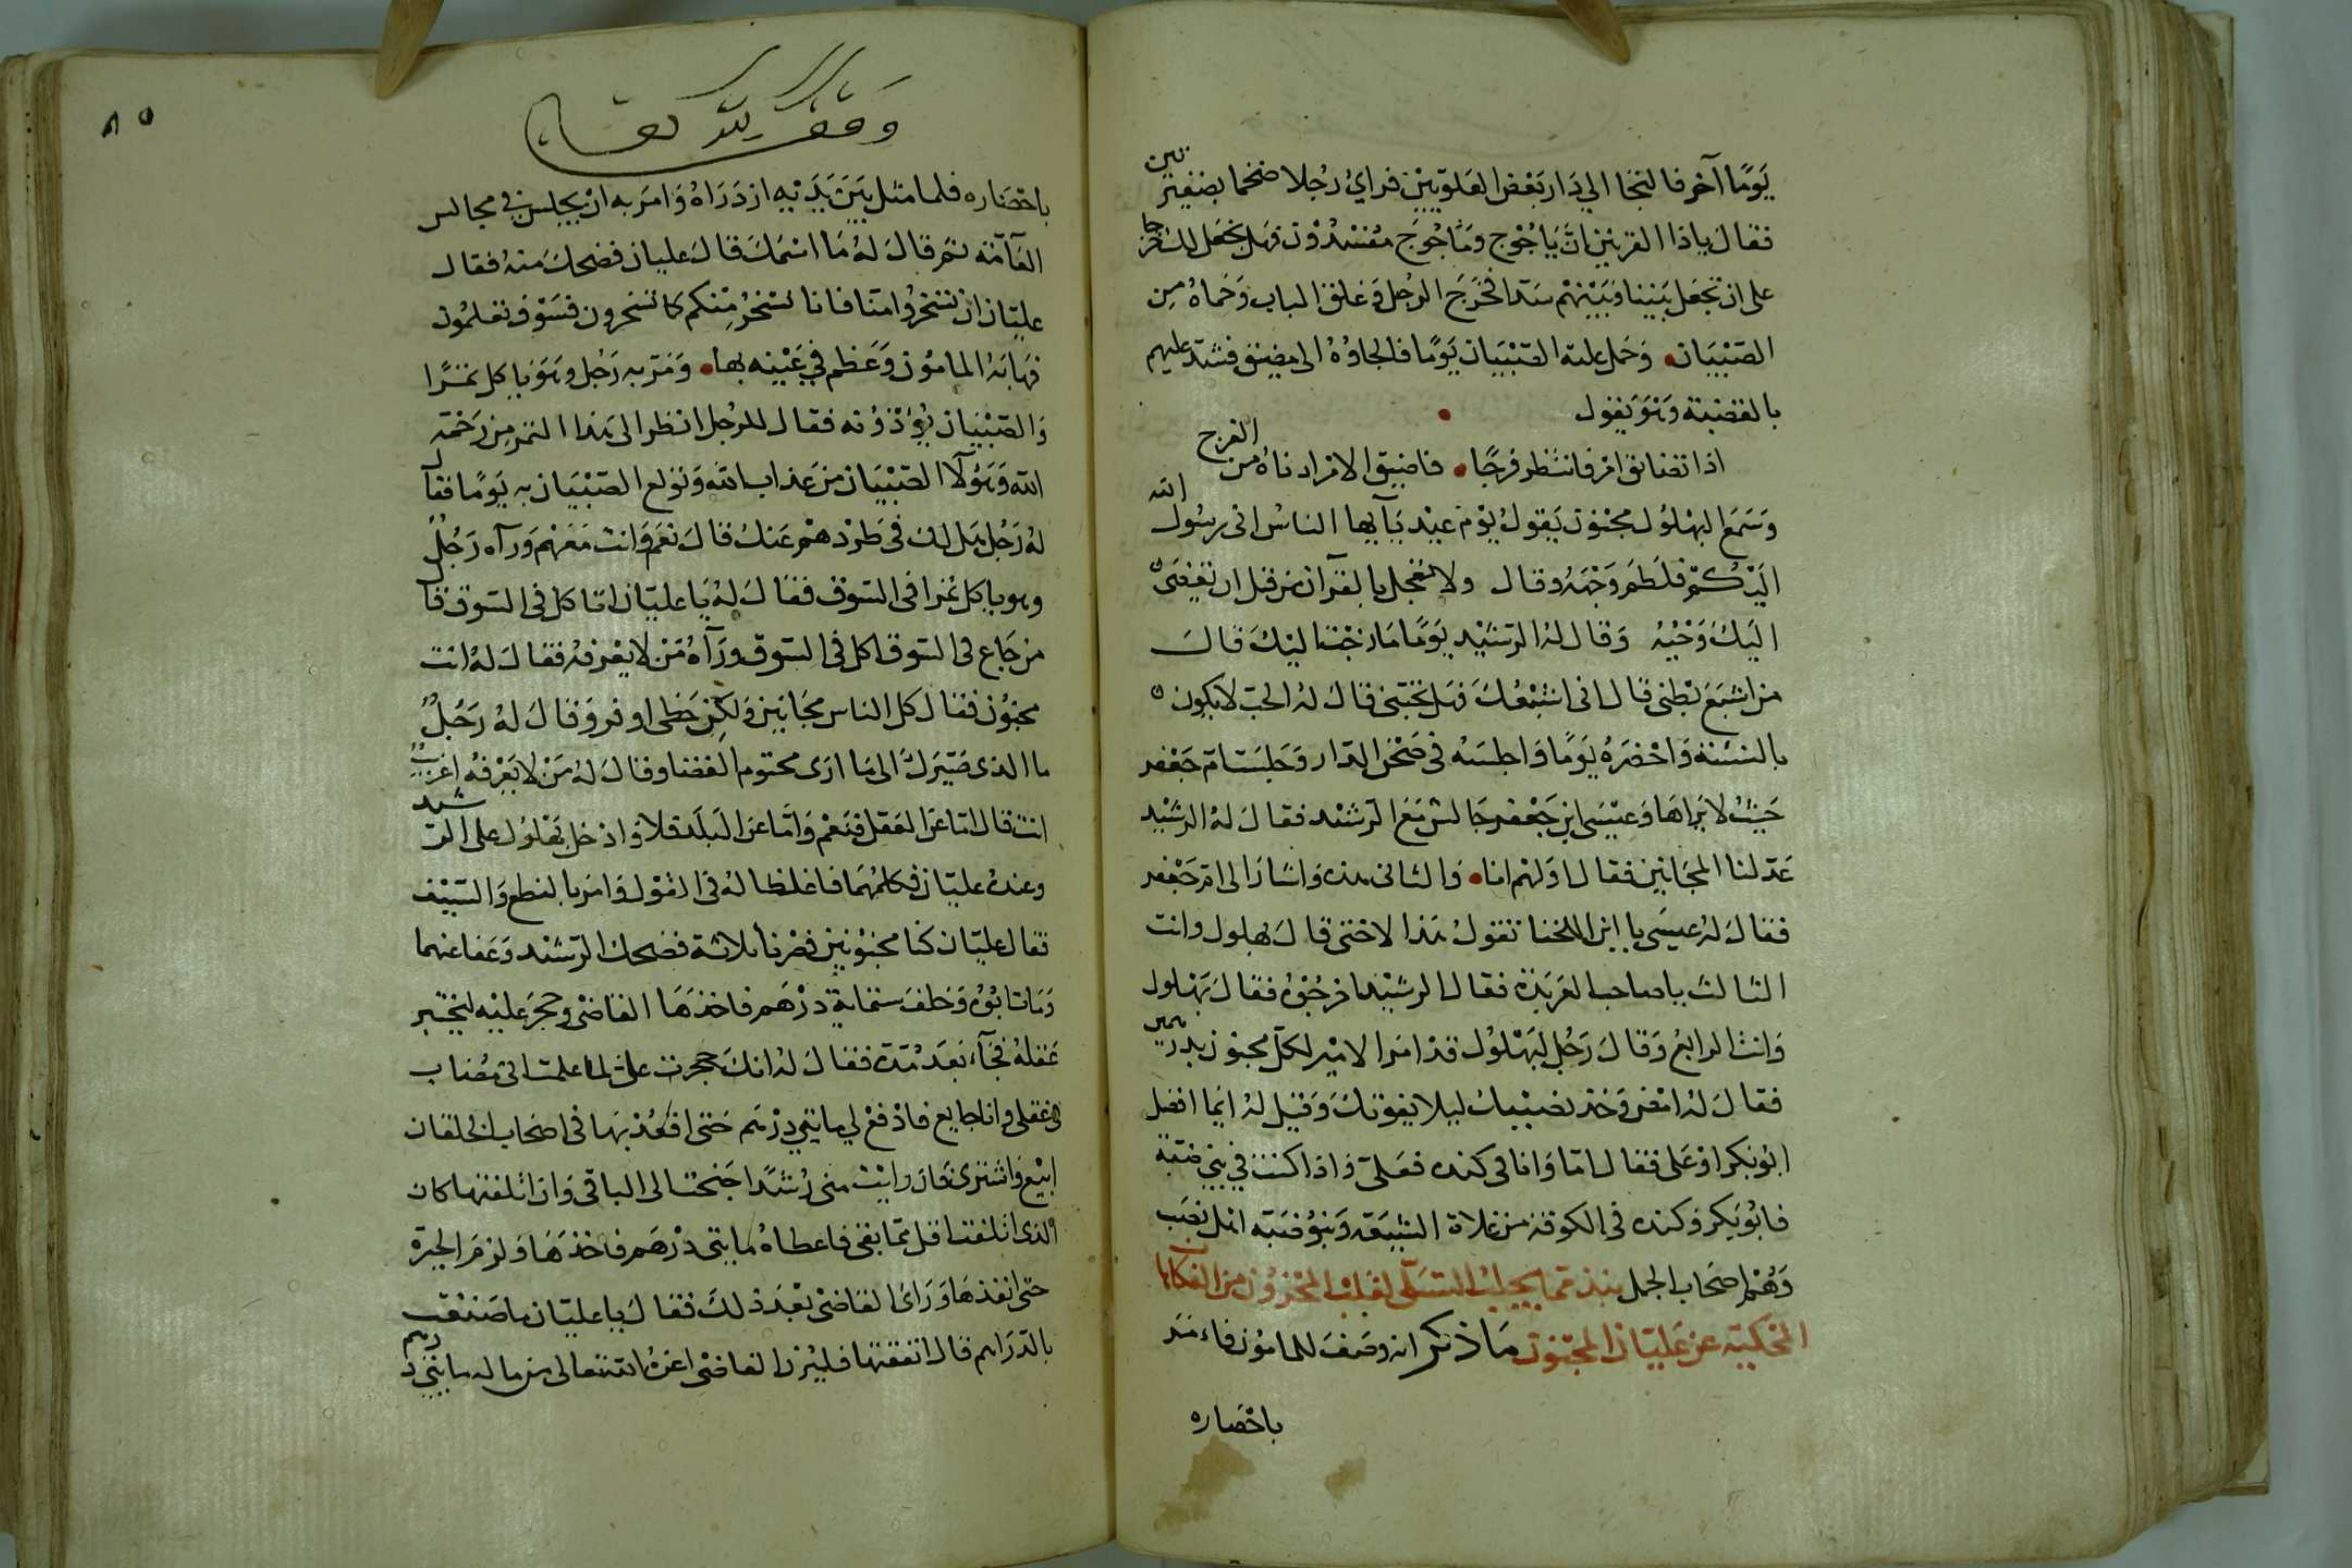 يَومًا آخر فالتجا الي دَار بَعْض العَلويّين فراي رجُلا ضخما بضفيرتين
فقال ياذا القرنين انّ يَاجُوج ومَاجُوجَ مفسدُون فهل نجعَل لك خرجا
على ان تجعَل بَيننا وَبَيْنهم سَدا فخرَجَ الرجُل وَغلق الباب وَحماهُ مِن
الصّبْيَان وَحمل عليه الصّبْيَان يَومًا فالجاوُهُ الى مضيق فشد عليهم
بالقضيبة وَهوَ يَقول
اذا تضايق امر فانتظر فرجًا فاضيق الامر ادناهُ من الفرج
وَسَمَع البهْلوُل مجنون يَقول يَوْم عيْد يَآيها الناسُ انى رسُول الله
اليْكم فلطمَ وَجْهَهُ وقال ولا تعجل بالقرآن من قبل ان يقضى
اليَك وَحْيُهُ وَقال لهُ الرشيْد يَومًا مَن احَبّ الناس اليْكَ قالَ
من اشبَعَ بَطنى قال انى اشبْعُكَ فهل تحبّنى قالَ لهُ الحبّ لا يكون
بالنسئة وَاحْضَرَهُ يَومًا وَاجلسَهُ فى صَحْن الدّار وَجلسَت امّ جَعْفر
حَيْثُ لا يراهَا وَعيْسَى ابن جَعْفر جَالس مَعَ الرشيْد فقالَ لهُ الرشيْد
عَدّ لنا المجَانين فقال اوّلهم انا وَالثانى هذه وَاشارَ الى امّ جَعْفر
فقالَ لهُ عيسَى يا ابن اللخنا تقولُ هَذا لاختى قالَ بهلول وانت
الثالث يا صاحب العَربَدة فقال الرشيْد اخرجُوهُ فقالَ بَهْلول
وَانت الرابعُ وَقالَ رَجُل لبَهْلوُل قد امرا الامير لكلّ مجنون بدرهمين
فقالَ لهُ امْض وَخذ نصيْبك ليلا يفوتكَ وَقيْل لهُ ايما افضل
ابُو بكر اوْ عَلى فقال امّا وَانا فى كنده فعَلىّ وَاذا كنت فى بنى ضبّة
فابُو بَكر وَكنده فى الكوفة من غلاة الشيَعة وَبنو ضبَة اهل نصَب
وَهُم اصَحَاب الجمل نبذ مما يجلب التسَلى لقلب المحزون من الفكاهات
المحَكيّة عن عَليّان المجنون مَا ذكر انه وصَفَ للمامُون فامَر
باحْضاره
وقف لله تعا
٨٥
باحْضاره فلما مثل بَيْن يَدَيْه ازدَرَاهُ وَامرَ به انْ يجلس فى مجالس
العَآمّة ثمّ قالَ لهُ مَا اسْمكَ قالَ عليان فضحكَ منهُ فقالَ
عليّان ان تسْخرُوا منّا فانا نسْخرُ مِنكم كما تسْخرون فسَوْف تعلمُون
فهَابَهُ المامُون وَعَظم في عَيْنه بها وَمَرّ به رَجُل وَهوَ ياكل تمرًا
وَالصّبْيَان يُؤذونه فقال للرجُل انظر الى هَذا التمر من رَحْمة
الله وَهَؤلآ الصّبْيَان من عَذاب الله وَتولع الصّبْيَان به يَومًا فقآل
لهُ رَجُل هَل لك فى طَرْدهمْ عَنكَ قالَ نعَم وَانت مَعَهُم وَرآه رَجُلٌ
وهو ياكل تمرا فى السّوْق فقالَ لهُ يَا عليّان اتاكل فى السّوق قال
من جَاع فى السّوق اكل فى السّوْق وَرَآهُ مَنْ لا يَعْرفهُ فقالَ لهُ انت
مجنُون فقال كل الناس مجَانين وَلكن حَظى اوفر وَقالَ لهُ رَجُلٌ
ما الذى صَيّرَكَ الى مَا ارَى محتوم القضا وقالَ لهُ مَن لا يَعْرفهُ اغريبٌ
انت قال امّا عَن العَقل فنَعْم وَامّا عَن البَلد فلا وَادخل بَهْلول على الرشيد
وعندهُ عليّان فكلمهُمَا فاغلظا لهُ فى القوْل وَامَر بالنطع وَالسّيْف
فقال عليّان كنا مجنُونين فصْرنا ثلاثة فضحك الرّشيْد وَعَفا عنهما
وَمَات ابُوُه وَخلفَ ستمايةِ درْهَم فاخذهَا القاضى وحجرَ عليْه ليَختبر
عَقلهُ فجآء بَعدَ مُدّة فقالَ لهُ انكَ حجرت علىّ لما علمت انى مُصَاب
فى عَقلى وانا جايع فادْفعْ لي مايتي درْهَم حَتى اقعُد بهَا فى اصْحَاب الخلقان
ابيْع وَاشتري فان رَايْت منى رشدًا اجَنحت الى الباقى وَان اتلفتهَا كان
الذى اتلفت اقل مّما بقى فاعطاهُ مايتى درْهَم فاخذهَا وَلزمَ الحيرة
حتى انفذهَا وَرَاى القاضى بَعْدَ ذلكَ فقالَ يا عليّان ما صَنعْت
بالدّرَاهم قال انفقتها فليزن القاضى اعزهُ الله تعالى من ماله مايتى درهم